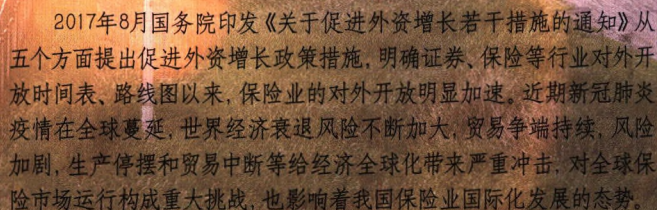 2017年8月国务院印发《关于促进外资增长若干措施的通知》从
五个方面提出促进外资增长政策措施，明确证券、保险等行业对外开
放时间表、路线图以来，保险业的对外开放明显加速。近期新冠肺炎
疫情在全球蔓延，世界经济衰退风险不断加大，贸易争端持续，风险
加剧，生产停摆和贸易中断等给经济全球化带来严重冲击，对全球保
险市场运行构成重大挑战，也影响着我国保险业国际化发展的态势。